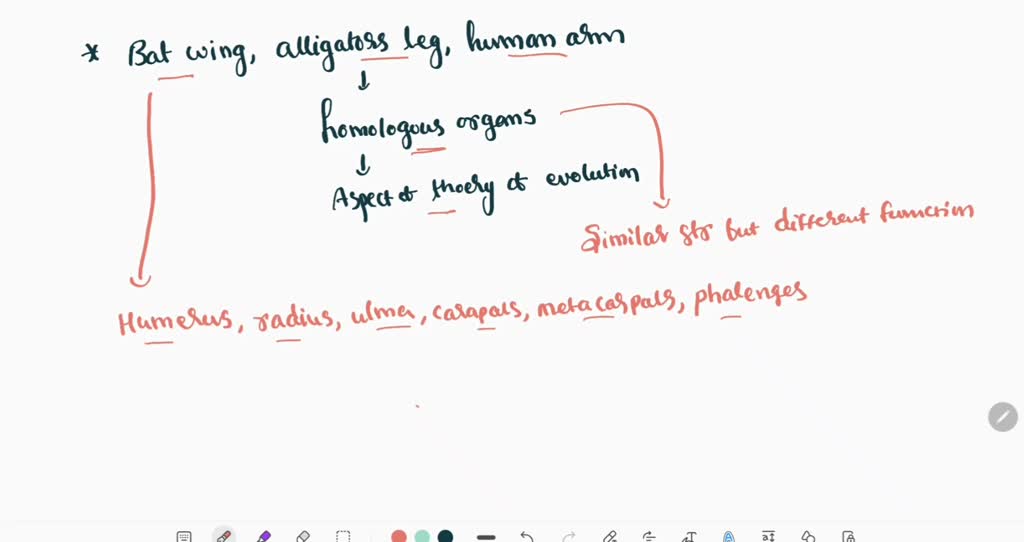 * Bat wing, alligators leg, human arm
↓
homologous organs
↓
Aspect of thoery of evolution
Similar str but different function
Humerus, radius, ulna, carapals, metacarpals, phalenges